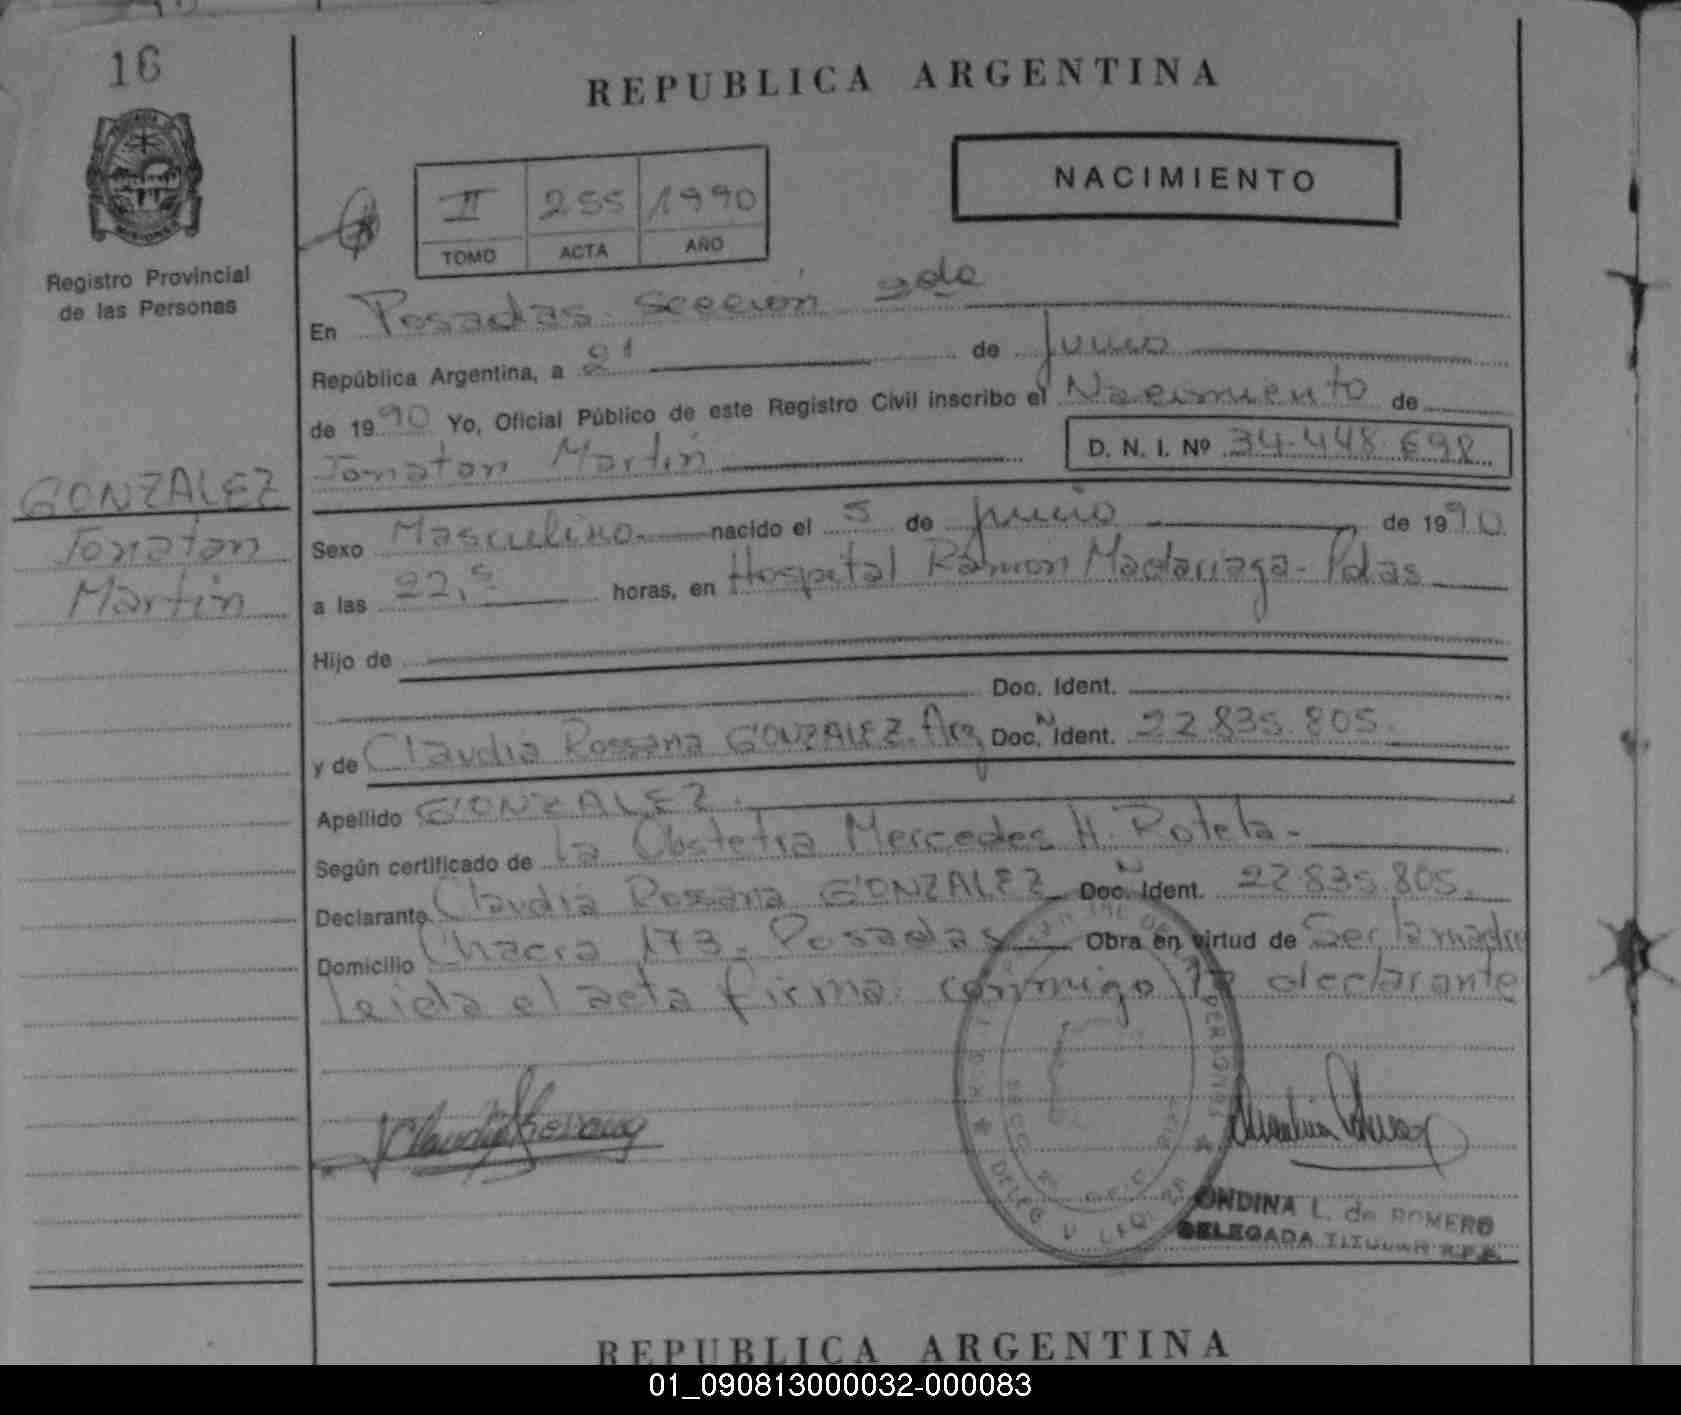 16
REPUBLICA ARGENTINA
NACIMIENTO
II 255 1990
TOMO ACTA AÑO
Registro Provincial
de las Personas
En Posadas. Sección 2da
República Argentina, a 21 de Junio
de 1990 Yo, Oficial Público de este Registro Civil inscribo el Nacimiento de
Jonatan Martin D. N. I. Nº 34.448.698
GONZALEZ
Jonatan
Martin
Sexo Masculino nacido el 5 de Junio de 1990
a las 22,5 horas, en Hospital Ramon Madariaga- Pdas
Hijo de
Doc. Ident.
y de Claudia Rossana GONZALEZ. Arg Doc. N Ident. 22.835.805.
Apellido GONZALEZ.
Según certificado de la Obstetra Mercedes H. Rotela-
Declarante Claudia Rossana GONZALEZ Doc. N Ident. 22.835.805.
Domicilio Chacra 173. Posadas Obra en virtud de Ser la madre
leida el acta firma conmigo la declarante
PERSONAS
ONDINA L. de ROMERO
DELEGADA TITULAR R.P.P.
REPUBLICA ARGENTINA
01_090813000032-000083